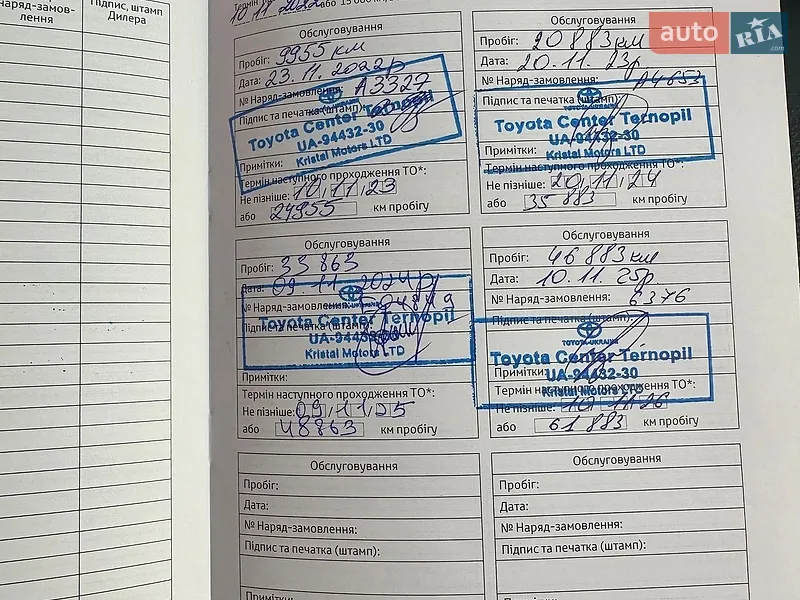 наряд-замов-
лення
Підпис, штамп
Дилера
10 11 2022
або 15 000 км
Обслуговування
Пробіг: 9955 км
Дата: 23.11.2022р
№ Наряд-замовлення: А3327
Підпис та печатка (штамп):
Toyota Center Ternopil
UA-94432-30
Kristal Motors LTD
Примітки:
Термін наступного проходження ТО*:
Не пізніше: 10,11,23
або 24955 км пробігу
Обслуговування
Пробіг: 20 883 км
Дата: 20.11.23р
№ Наряд-замовлення: А4653
Підпис та печатка (штамп):
TOYOTA-UKRAINE
Toyota Center Ternopil
UA-94432-30
Kristal Motors LTD
Примітки:
Термін наступного проходження ТО*:
Не пізніше: 20,11,24
або 35 883 км пробігу
Обслуговування
Пробіг: 33 863
Дата: 09.11.2024р
№ Наряд-замовлення:
Підпис та печатка (штамп):
TOYOTA-UKRAINE
Toyota Center Ternopil
UA-94432-30
Kristal Motors LTD
Примітки:
Термін наступного проходження ТО*:
Не пізніше: 09,11,25
або 48863 км пробігу
Обслуговування
Пробіг: 46 883 км
Дата: 10.11.25р
№ Наряд-замовлення: 6376
Підпис та печатка (штамп):
TOYOTA-UKRAINE
Toyota Center Ternopil
UA-94432-30
Kristal Motors LTD
Примітки:
Термін наступного проходження ТО*:
Не пізніше: 10 11 26
або 61 883 км пробігу
Обслуговування
Пробіг:
Дата:
№ Наряд-замовлення:
Підпис та печатка (штамп):
Примітки:
Обслуговування
Пробіг:
Дата:
№ Наряд-замовлення:
Підпис та печатка (штамп):
auto RIA .com